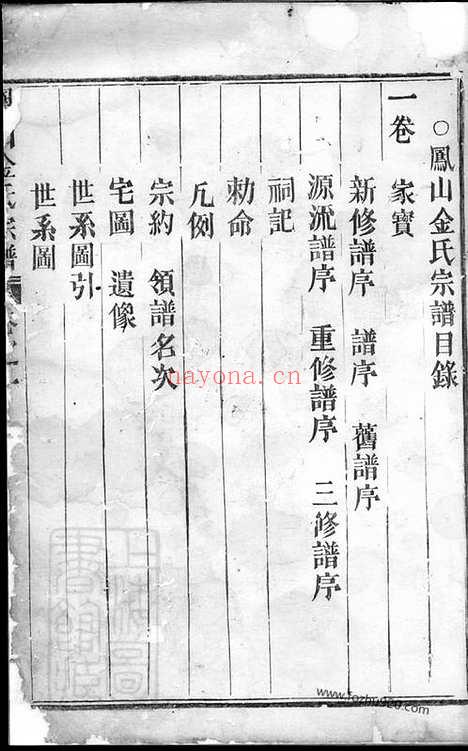 ○鳳山金氏宗譜目錄
一卷
家寶
新修譜序 譜序 舊譜序
源流譜序 重修譜序 三修譜序
祠記
勅命
凡例
宗約 領譜名次
宅圖 遺像
世系圖引
世系圖
金氏宗譜
nayona.cn
www.fozhu920.com